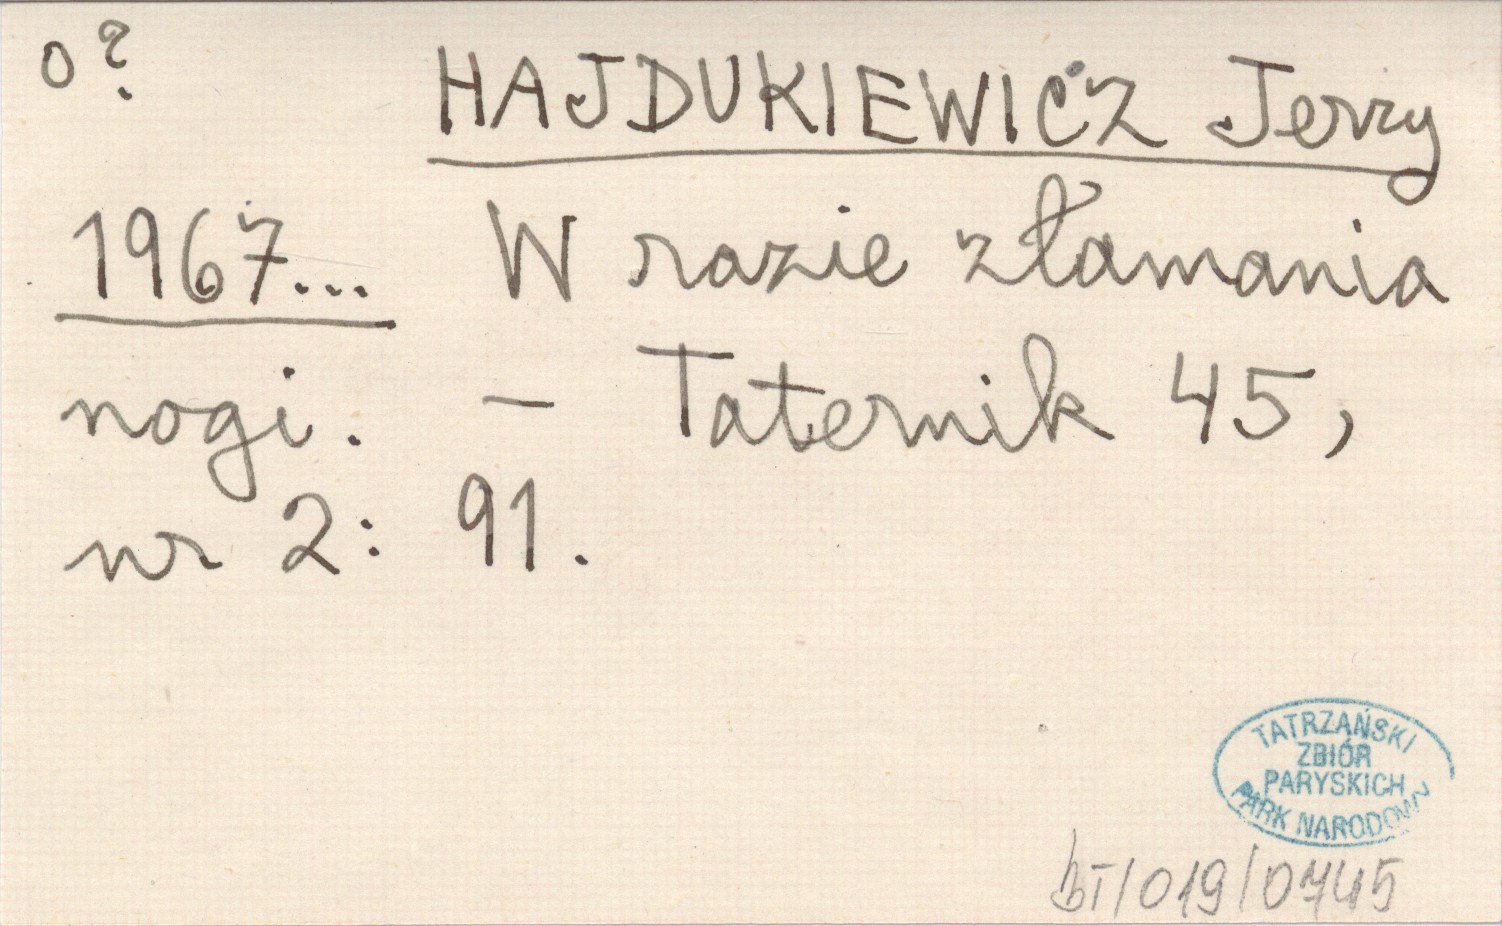 o?
HAJDUKIEWICZ Jerzy
1967... W razie złamania
nogi. – Taternik 45,
nr 2: 91.
TATRZAŃSKI
ZBIÓR
PARYSKICH
PARK NARODOWY
bT/019/0745